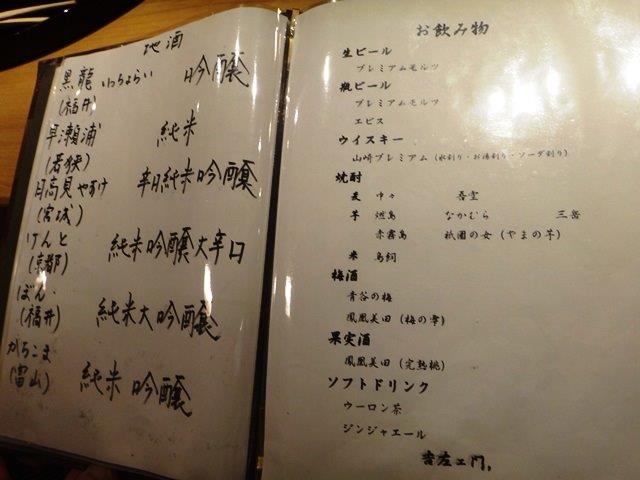 地酒
黒龍 いっちょらい 吟醸
(福井)
早瀬浦 純米
(若狭)
日高見 やすけ 辛口純米吟醸
(宮城)
けんと 純米吟醸大辛口
(京都)
ぼん・ 純米大吟醸
(福井)
かちこま 純米吟醸
(富山)
お飲み物
生ビール
プレミアムモルツ
瓶ビール
プレミアムモルツ
エビス
ウイスキー
山崎プレミアム (水割り・お湯割り・ソーダ割り)
焼酎
麦 中々 吾空
芋 なかむら 三岳
赤霧島 祇園の女 (やまの芋)
米 鳥飼
梅酒
青谷の梅
鳳凰美田 (梅の雫)
果実酒
鳳凰美田 (完熟桃)
ソフトドリンク
ウーロン茶
ジンジャエール
吉左ェ門,